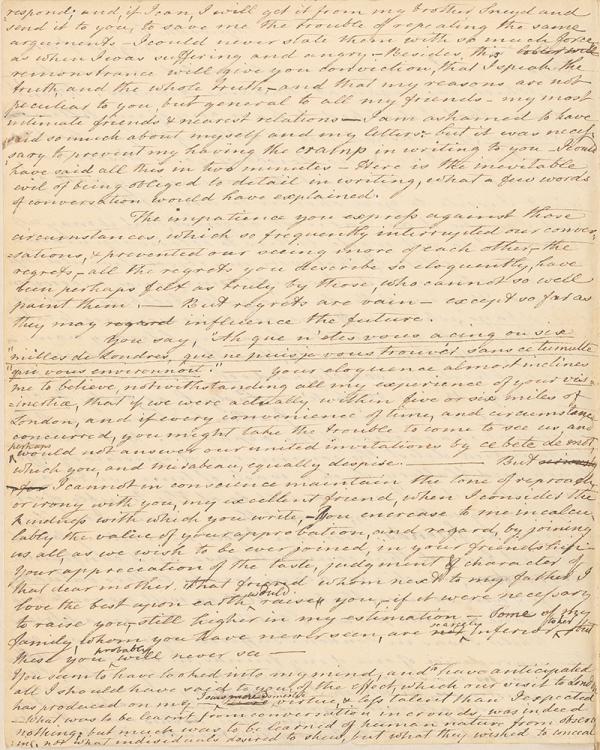 respond; and, if I can, I will get it from my brother Sneyd and
send it to you, to save me the trouble of repeating the same
arguments – I could never state them with so much force
as when I was suffering and angry – Besides, this
remonstrance will give you conviction, that I speak the
truth and the whole truth – and that my reasons are not
peculiar to you, but general to all my friends – my most
intimate friends & nearest relations – I am ashamed to have
said so much about myself and my letters: but it was neces-
sary to prevent my having the cramp in writing to you – I could
have said all this in two minutes – Here is the inevitable
evil of being obliged to detail in writing, what a few words
of conversation would have explained.
The impatience you express against those
circumstances, which so frequently interrupted our conver-
sations, & prevented our seeing more of each other, the
regrets – all the regrets you describe so eloquently, have
been perhaps felt as truly by those, who cannot so well
paint them. — But regrets are vain – except so far as
they may regard influence the future.
You say, "Ah que n'etes vous a cinq ou six
"milles de Londres, que ne puis je vous trouver sans ce tumulte
"qui vous environnoit." — your eloquence almost inclines
me to believe, notwithstanding all my experience of your vis
inertiæ, that if we were actually within five or six miles of
London, and if every convenience of time, and circumstance
concurred, you might take the trouble to come to see us, and
perhaps would not answer our united invitations by ce bete de mot,
which you, and Mirabeau, equally despise. — But
I cannot in conscience maintain the tone of reproach,
or irony with you, my excellent friend, when I consider the
kindness with which you write, – You encrease to me incalcu-
lably the value of your approbation, and regard, by joining
us all, as we wish to be ever joined, in your friendship –
Your appreciation of the taste, judgment & character of
that dear mother, that friend whom next to my father, I
love the best upon earth, would raise you, – if it were necessary
to raise you – still higher in my estimation – Some of my
family, whom you have never seen, are scarcely inferior to her but
these you probably will never see –
You seem to have looked into my mind, and to have anticipated
all I should have said to you, of the effect, which our visit to London
has produced on my virtue, & less talent than I expected
– What was to be learnt from conversation in crowds, was indeed
nothing; but much was to be learned of human nature from obser-
ving, not what individuals desired to shew, but what they wished to conceal